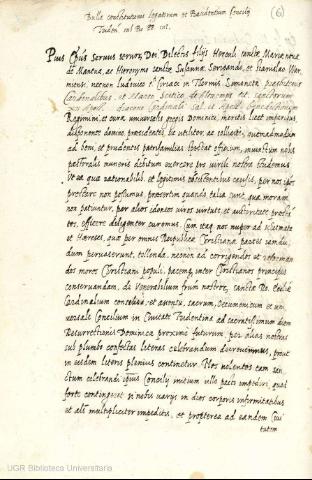 (6)
Bulla constitutionis legatorum et Presidentium Concilij
Triden.
Pius Epus Servus servor. Dei Dilectis filijs Herculi sanctæ Mariæ novæ
de Mantua, ac Hieronymo sanctæ Susannæ Seripando, et Stanislao War
mien. necnon Ludovico S. Ciriaci in Thermis Simoneta, præsbiteris
Cardinalibus, et Marco Sittico de Altaemps tt. sanctorum
Apost. diacono Cardinali Sal. et Apost. bened
Regimini, et cura universalis gregis Dominici, meritis licet imparibus,
disponente domino præsidentes ita utiliter, ac sollicitè, quemadmodum
ad boni, et prudentis patrisfamilias spectat officium, iniunctum nobis
pastoralis muneris debitum exercere pro virili nostra studemus
Ut ea quæ rationabilibus, et legitimis causis, per nos ipsos
præstare non possumus, præsertim quando talia sunt, quæ moram
non patiantur, per alios idoneos viros virtute, et authoritate prædi
tos, efficere diligenter curemus, cum itaq. nos nuper ad schismata
et Hæreses, quæ per omnes Reipublicæ Christianæ partes iamdu
dum pervaserunt, tollenda, necnon ad corrigendos et reforman
dos mores Christiani populi, pacemq. inter Christianos principes
conservandam, de Venerabilium frum nostror. sanctæ Ro. Ecclesiæ
Cardinalium consilio, et assensu, sacrum, Oecumenicum et uni
versale Concilium in Civitate Tridentina ad sacratissimum diem
Resurrectionis Dominicæ proxime futurum, per alias nostras
sub plumbo confectas literas celebrandum, prout
in iisdem literis plenius continetur. Nos nolentes tam san
ctum celebrandi ipsius Concilij initium ullo pacto impediri, quod
forte contingeret si nobis varijs in dies corporis infirmitatibus
et alijs multipliciter impeditis, et propterea ad eandem Civi
tatem
UGR Biblioteca Universitaria